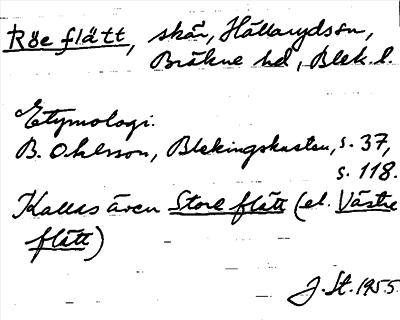 Röe flätt, skär, Hällarydssn,
Bräkne hd, Blek. l.
Etymologi.
B. Ohlsson, Blekingskusten, s. 37,
s. 118.
Kallas även Store flätt (el. Västre
flätt)
J. St. 1955.